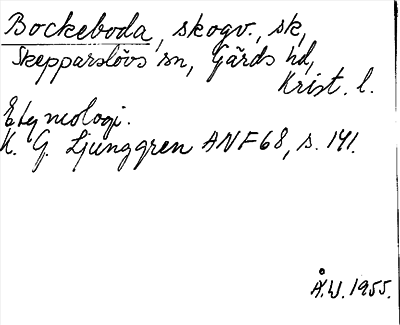 Bockeboda, skogv., sk,
Skepparslövs sn, Gärds hd,
Krist. l.
Etymologi.
K. G. Ljunggren ANF 68, s. 141.
Å.W. 1955.